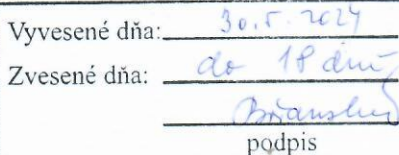 Vyvesené dňa: 30.5.2024
Zvesené dňa: do 18 dní
podpis